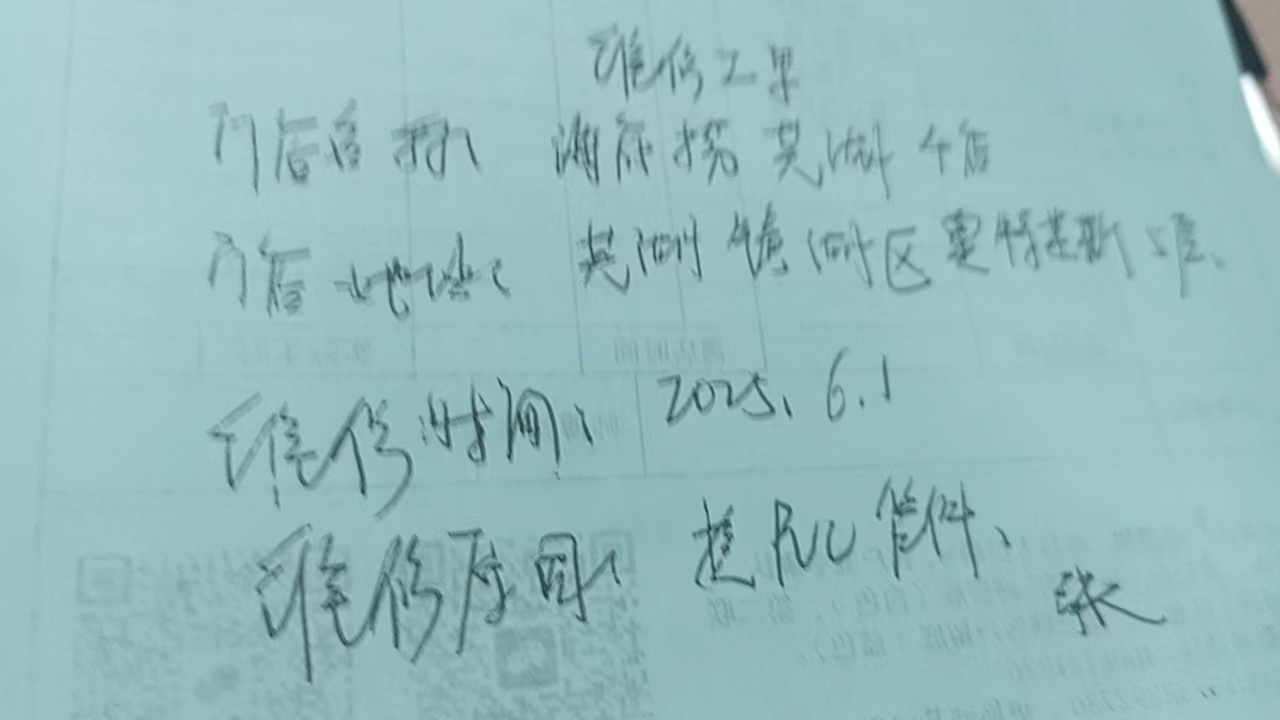 维修工单
门店名称、海底捞芜湖 店
门店地址、芜湖镜湖区奥特莱斯
维修时间、2025.6.1
维修原因、 PVC管件、
张